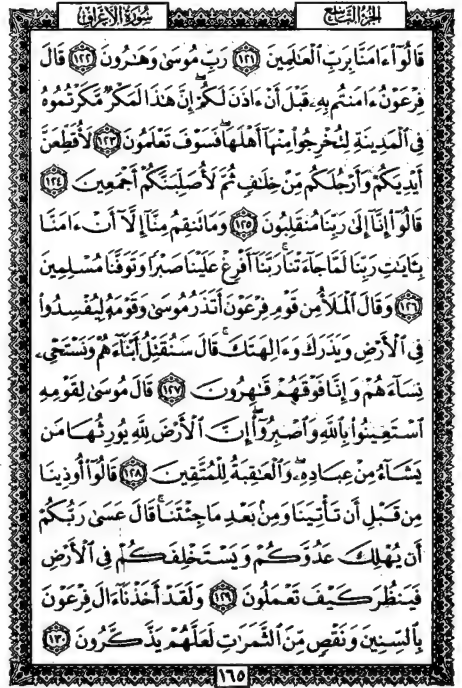 الجُزْءُ التَّاسِعُ
سُورَةُ الأَعْرَافِ
قَالُوٓاْ ءَامَنَّا بِرَبِّ ٱلْعَٰلَمِينَ ١٢١ رَبِّ مُوسَىٰ وَهَٰرُونَ ١٢٢ قَالَ
فِرْعَوْنُ ءَامَنتُم بِهِۦ قَبْلَ أَنْ ءَاذَنَ لَكُمْ ۖ إِنَّ هَٰذَا لَمَكْرٌ مَّكَرْتُمُوهُ
فِى ٱلْمَدِينَةِ لِتُخْرِجُواْ مِنْهَآ أَهْلَهَا ۖ فَسَوْفَ تَعْلَمُونَ ١٢٣ لَأُقَطِّعَنَّ
أَيْدِيَكُمْ وَأَرْجُلَكُم مِّنْ خِلَٰفٍ ثُمَّ لَأُصَلِّبَنَّكُمْ أَجْمَعِينَ ١٢٤
قَالُوٓاْ إِنَّآ إِلَىٰ رَبِّنَا مُنقَلِبُونَ ١٢٥ وَمَا تَنقِمُ مِنَّآ إِلَّآ أَنْ ءَامَنَّا
بِـَٔايَٰتِ رَبِّنَا لَمَّا جَآءَتْنَا ۚ رَبَّنَآ أَفْرِغْ عَلَيْنَا صَبْرًا وَتَوَفَّنَا مُسْلِمِينَ
١٢٦ وَقَالَ ٱلْمَلَأُ مِن قَوْمِ فِرْعَوْنَ أَتَذَرُ مُوسَىٰ وَقَوْمَهُۥ لِيُفْسِدُواْ
فِى ٱلْأَرْضِ وَيَذَرَكَ وَءَالِهَتَكَ ۚ قَالَ سَنُقَتِّلُ أَبْنَآءَهُمْ وَنَسْتَحْىِۦ
نِسَآءَهُمْ وَإِنَّا فَوْقَهُمْ قَٰهِرُونَ ١٢٧ قَالَ مُوسَىٰ لِقَوْمِهِ
ٱسْتَعِينُواْ بِٱللَّهِ وَٱصْبِرُوٓاْ ۖ إِنَّ ٱلْأَرْضَ لِلَّهِ يُورِثُهَا مَن
يَشَآءُ مِنْ عِبَادِهِۦ ۖ وَٱلْعَٰقِبَةُ لِلْمُتَّقِينَ ١٢٨ قَالُوٓاْ أُوذِينَا
مِن قَبْلِ أَن تَأْتِيَنَا وَمِنۢ بَعْدِ مَا جِئْتَنَا ۚ قَالَ عَسَىٰ رَبُّكُمْ
أَن يُهْلِكَ عَدُوَّكُمْ وَيَسْتَخْلِفَكُمْ فِى ٱلْأَرْضِ
فَيَنظُرَ كَيْفَ تَعْمَلُونَ ١٢٩ وَلَقَدْ أَخَذْنَآ ءَالَ فِرْعَوْنَ
بِٱلسِّنِينَ وَنَقْصٍ مِّنَ ٱلثَّمَرَٰتِ لَعَلَّهُمْ يَذَّكَّرُونَ ١٣٠
١٦٥